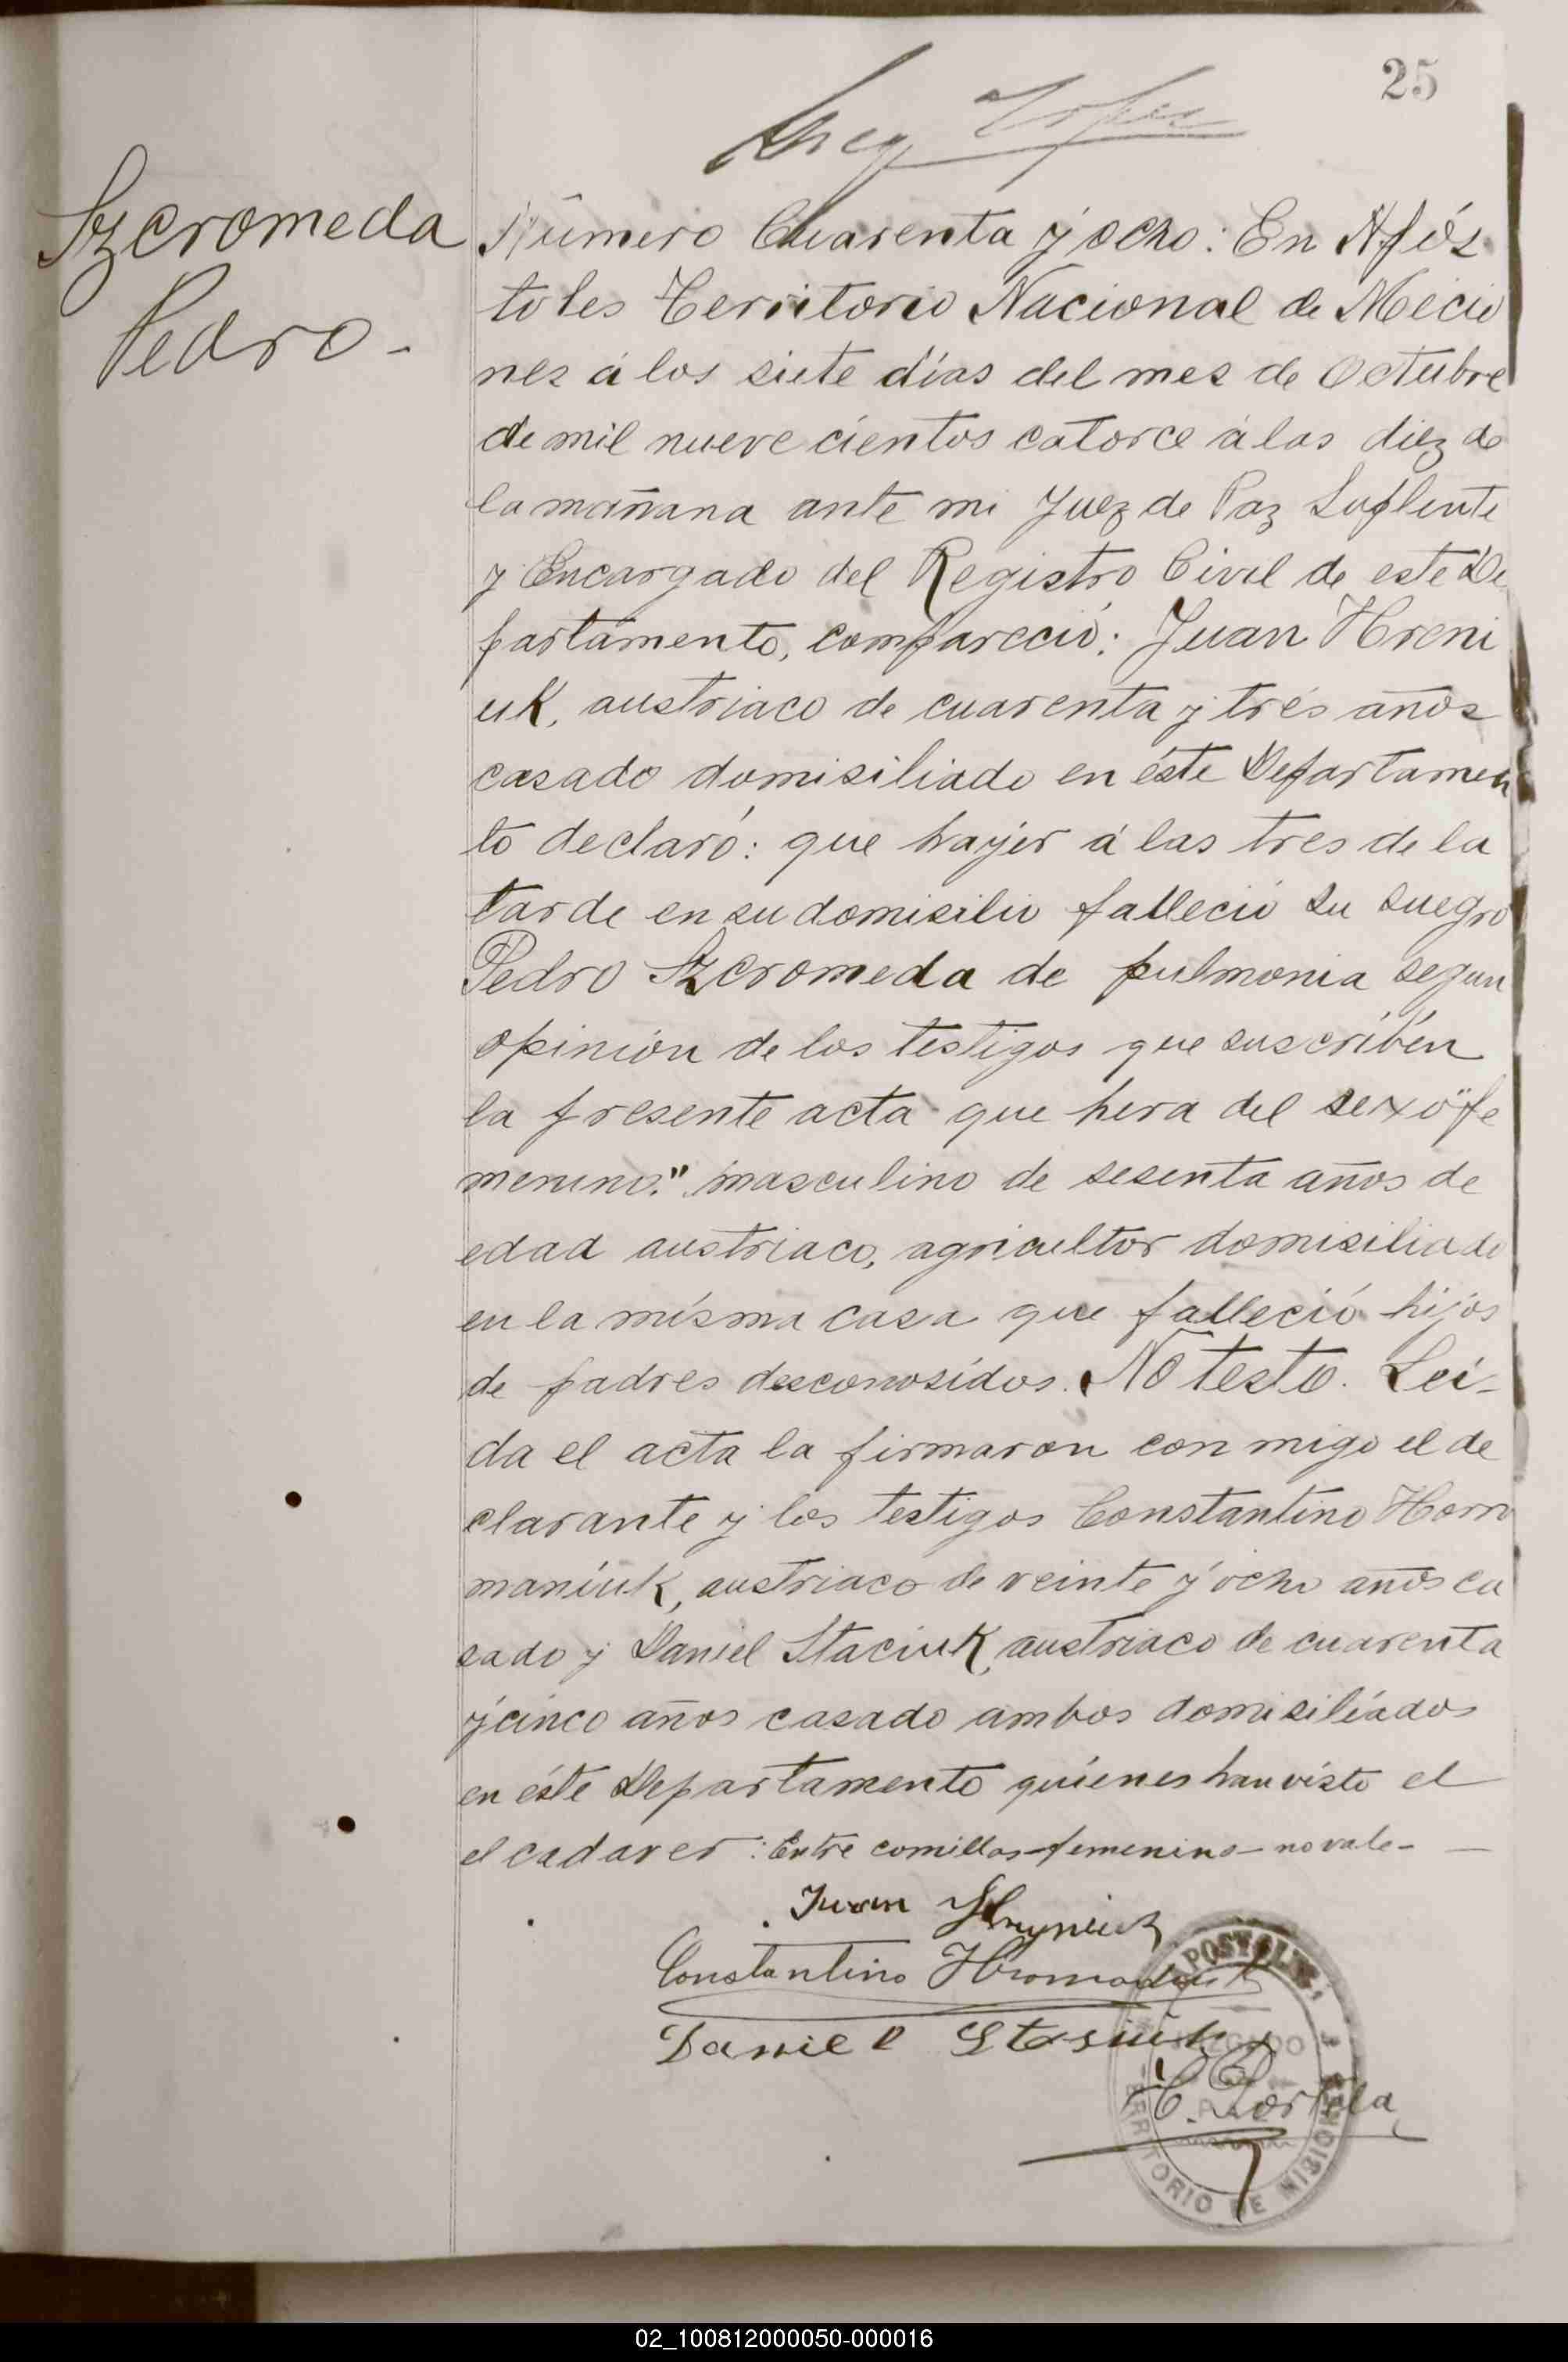 25
Szcromeda
Pedro-
Número Cuarenta y ocho: En Após
toles Territorio Nacional de Mecio
nes á los siete días del mes de Octubre
de mil nueve cientos catorce á las diez de
la mañana ante mi Juez de Paz Suplente
y Encargado del Registro Civil de este De
partamento, compareció: Juan Hreni
uk, austriaco de cuarenta y tres años
casado domisiliado en éste Departamen
to declaró: que hayer á las tres de la
tarde en su domisilio falleció su suegro
Pedro Szcromeda de pulmonia segun
opinión de los testigos que suscriben
la presente acta que hera del sexo "fe
menino." masculino de sesenta años de
edad austriaco, agricultor domisiliado
en la misma casa que falleció hijos
de padres desconosidos. No testo. Lei-
da el acta la firmaron con migo el de
clarante y los testigos Constantino Horo
maniuk, austriaco de veinte y ocho años ca
sado y Daniel Staciuk, austriaco de cuarenta
y cinco años casado ambos domisiliados
en éste Departamento quienes han visto el
el cadaver: Entre comillas-femenino-no vale-
Juan Hryniuk
Constantino Hromaniuk
Daniel Stasiuk
C. Portela
APOSTOLES
JUZGADO
DE
PAZ
TERRITORIO DE MISIONES
02_100812000050-000016